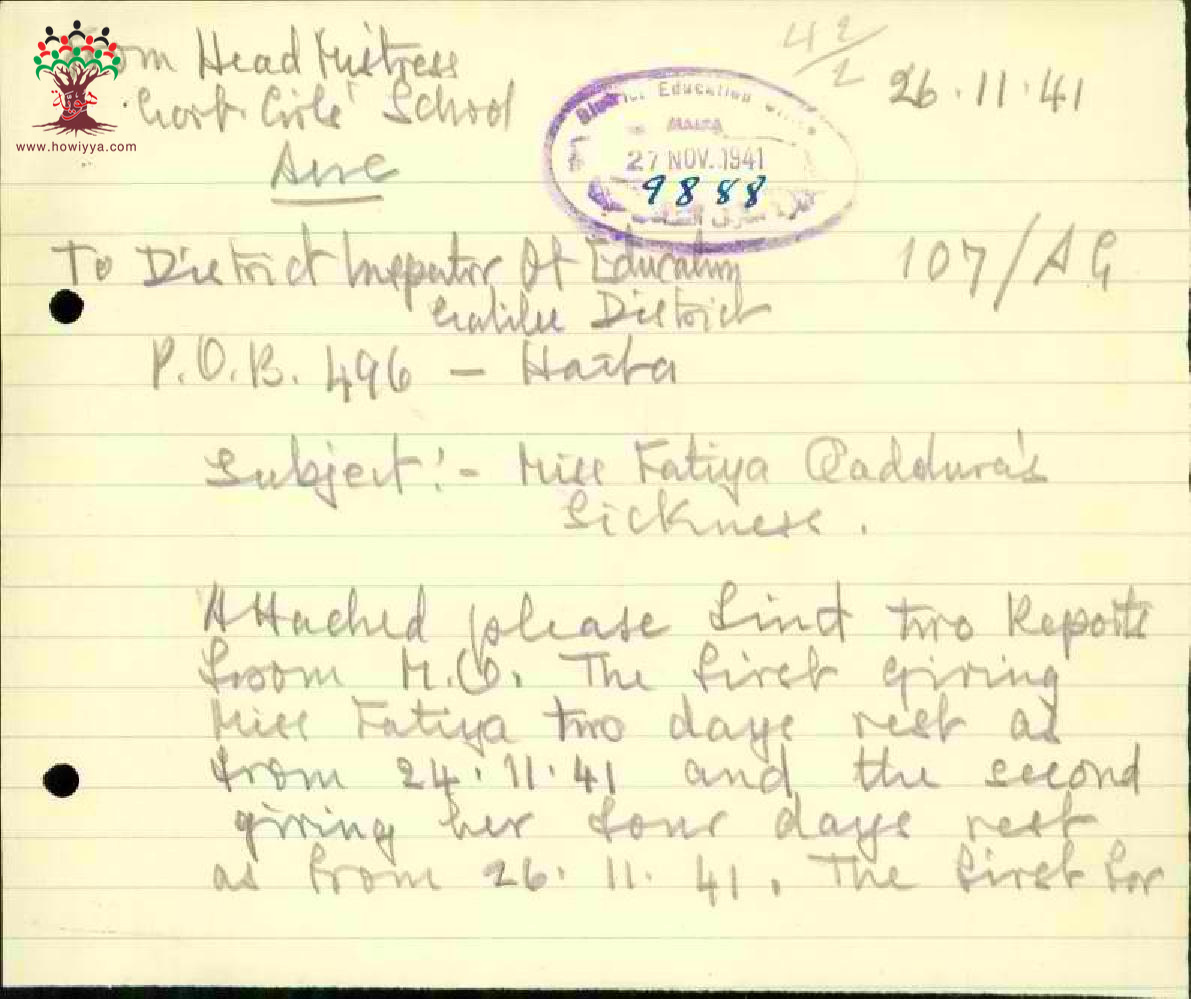 from Head Mistress
Govt. Girls' School
Acre
www.howiyya.com
42/2
26.11.41
District Education Office
Haifa
27 NOV. 1941
9888
To District Inspector Of Education
Galilee District
107/AG
P.O.B. 496 - Haifa
Subject:- Miss Fatiya Qaddura's
Sickness.
Attached please find two Reports
from M.O. The first giving
Miss Fatiya two days rest as
from 24.11.41 and the second
giving her four days rest
as from 26.11.41. The first for